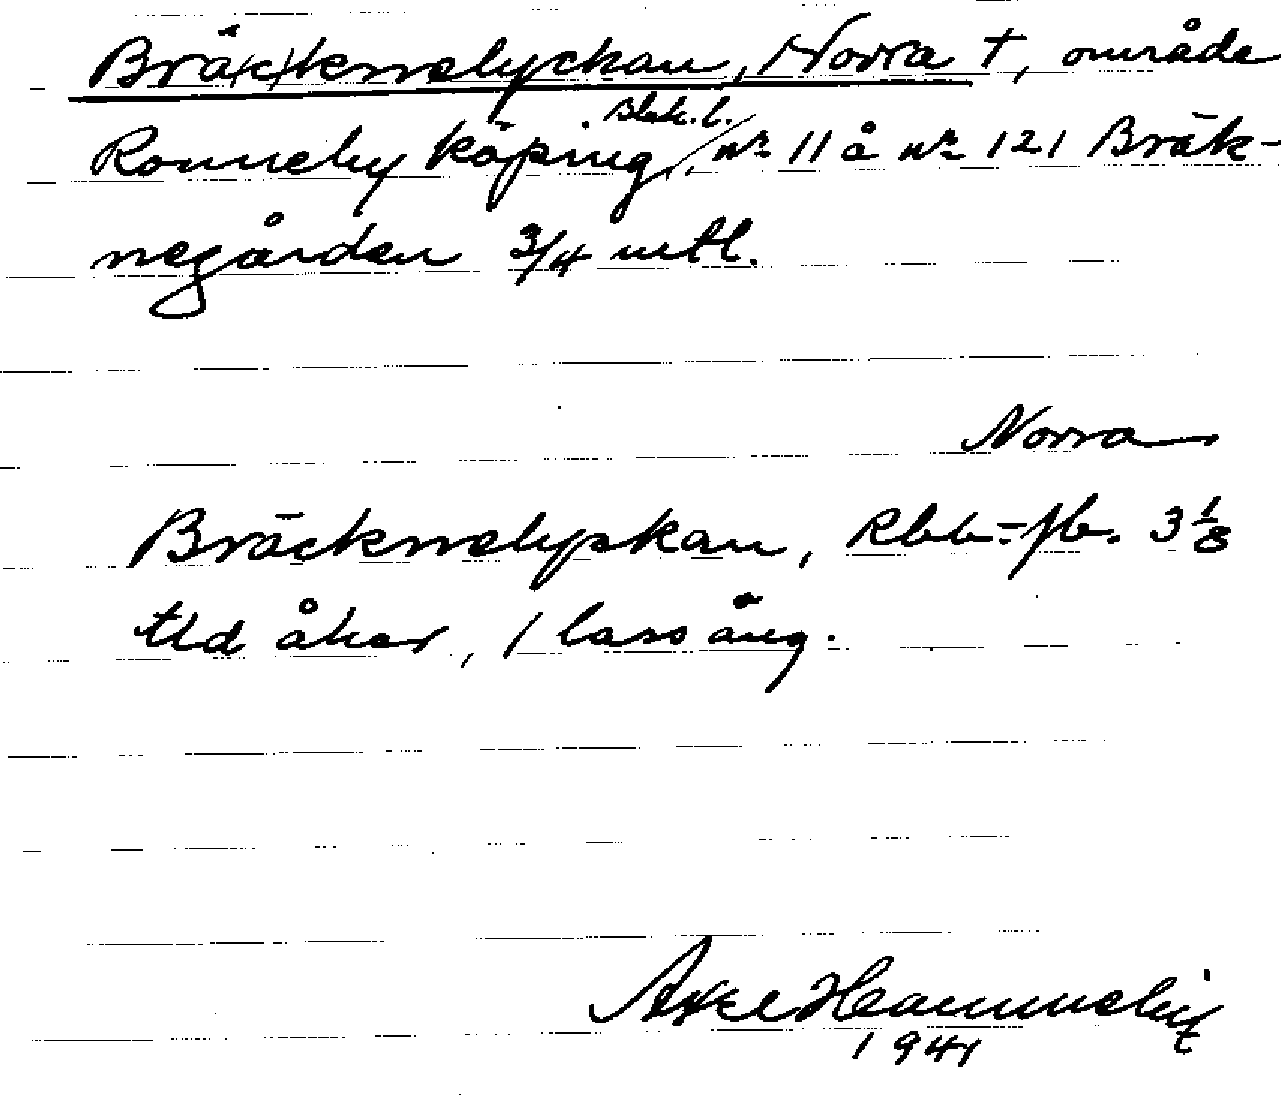 Brä(c)knelyckan, Norra †, område
Ronneby köping, Blek. l. nr 11 å nr 121 Bräk-
negården 3/4 mtl.
Norra
Bräcknelyckan, Rbb-fb. 3 1/8
tld åker, 1 lass äng.
Axel
1941